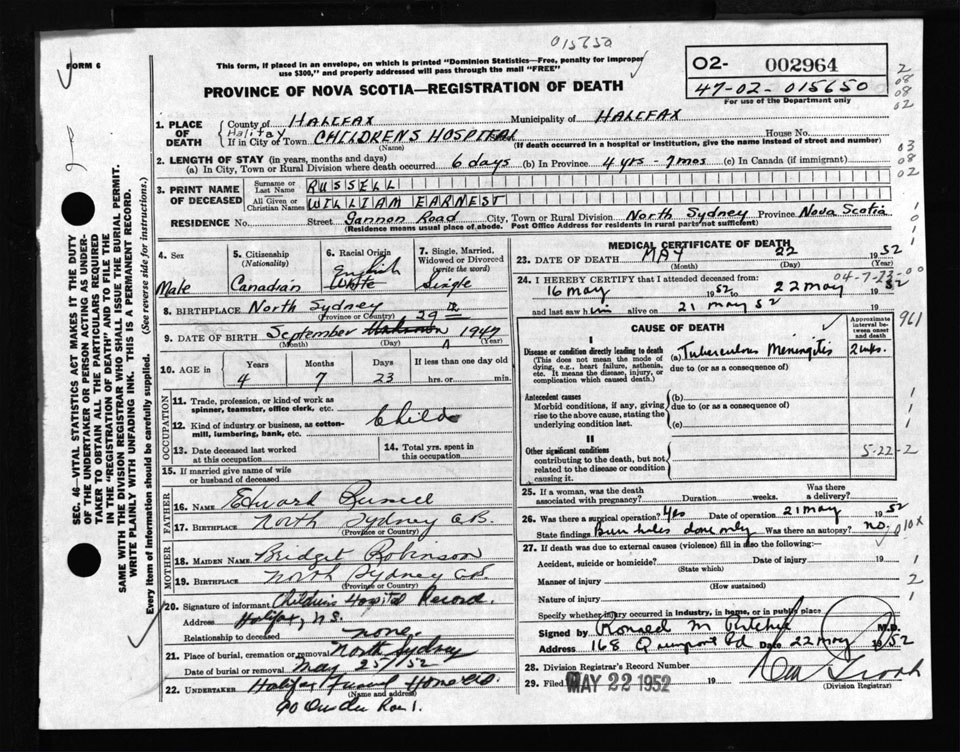 015650
FORM 6
This form, if placed in an envelope, on which is printed "Dominion Statistics—Free, penalty for improper use $300," and properly addressed will pass through the mail "FREE"
O2- 002964
47-02-015650
For use of the Department only
PROVINCE OF NOVA SCOTIA—REGISTRATION OF DEATH
1. PLACE OF DEATH
County of HALIFAX Municipality of HALIFAX
Halifax
If in City or Town CHILDRENS HOSPITAL House No.
(Name) (If death occurred in a hospital or institution, give the name instead of street and number)
2. LENGTH OF STAY (in years, months and days)
(a) In City, Town or Rural Division where death occurred 6 days (b) In Province 4 yrs - 7 mos (c) In Canada (if immigrant)
3. PRINT NAME OF DECEASED
Surname or Last Name RUSSELL
All Given or Christian Names WILLIAM EARNEST
RESIDENCE No. Street Gannon Road City, Town or Rural Division North Sydney Province Nova Scotia
(Residence means usual place of abode. Post Office Address for residents in rural parts not sufficient)
4. Sex Male
5. Citizenship (Nationality) Canadian
6. Racial Origin English White
7. Single, Married, Widowed or Divorced (write the word) Single
8. BIRTHPLACE North Sydney
(Province or Country)
29
9. DATE OF BIRTH September Unknown 1947
(Month) (Day) (Year)
10. AGE in Years Months Days If less than one day old
4 7 23 hrs. or min.
OCCUPATION
11. Trade, profession, or kind of work as spinner, teamster, office clerk, etc.
12. Kind of industry or business, as cotton-mill, lumbering, bank, etc.
Child
13. Date deceased last worked at this occupation
14. Total yrs. spent in this occupation
15. If married give name of wife or husband of deceased
FATHER
16. NAME Edward Russell
17. BIRTHPLACE North Sydney C.B.
(Province or Country)
MOTHER
18. MAIDEN NAME Bridget Robinson
19. BIRTHPLACE North Sydney C.B.
(Province or Country)
20. Signature of informant Childrens Hospital Record.
Address Halifax, N.S.
Relationship to deceased none.
21. Place of burial, cremation or removal North Sydney
Date of burial or removal May 25/52
22. UNDERTAKER Halifax Funeral Home
(Name and address)
MEDICAL CERTIFICATE OF DEATH
23. DATE OF DEATH MAY 22 1952
(Month) (Day) (Year)
04-7-23-00
24. I HEREBY CERTIFY that I attended deceased from:
16 May 1952 to 22 May 1952
and last saw him alive on 21 May 52
CAUSE OF DEATH
Approximate interval between onset and death
961
I
Disease or condition directly leading to death
(This does not mean the mode of dying, e.g., heart failure, asthenia, etc. It means the disease, injury, or complication which caused death.)
(a) Tuberculous Meningitis 2 wks.
due to (or as a consequence of)
Antecedent causes
Morbid conditions, if any, giving rise to the above cause, stating the underlying condition last.
(b)
due to (or as a consequence of)
(c)
II
Other significant conditions
contributing to the death, but not related to the disease or condition causing it.
5-22-2
25. If a woman, was the death associated with pregnancy? Duration weeks. Was there a delivery?
26. Was there a surgical operation? Yes Date of operation 21 May 1952
State findings Burr holes done only Was there an autopsy? no
27. If death was due to external causes (violence) fill in also the following:—
Accident, suicide or homicide? Date of injury 19
(State which)
Manner of injury
(How sustained)
Nature of injury
Specify whether injury occurred in industry, in home, or in public place
Signed by M Ritchie M.D.
Address 168 Quinpool Rd Date 22 May 1952
28. Division Registrar's Record Number
29. Filed MAY 22 1952 19
(Division Registrar)
SEC. 46—VITAL STATISTICS ACT MAKES IT THE DUTY OF THE UNDERTAKER OR PERSON ACTING AS UNDERTAKER TO OBTAIN ALL THE PARTICULARS REQUIRED IN THE "REGISTRATION OF DEATH" AND TO FILE THE SAME WITH THE DIVISION REGISTRAR WHO SHALL ISSUE THE BURIAL PERMIT.
WRITE PLAINLY WITH UNFADING INK. THIS IS A PERMANENT RECORD.
Every item of information should be carefully supplied. (See reverse side for instructions.)